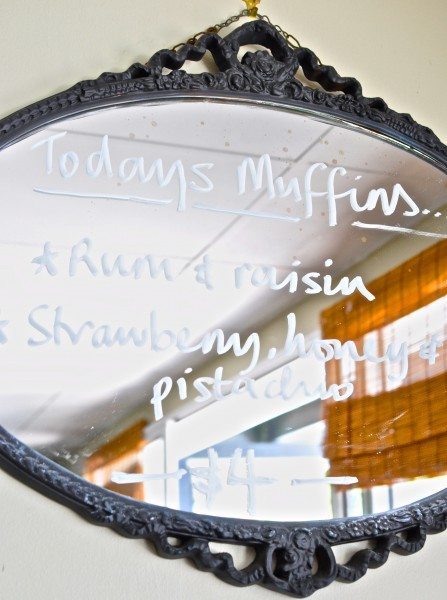 Todays Muffins..
* Rum & raisin
* Strawberry, honey &
pistachio
- $4 -